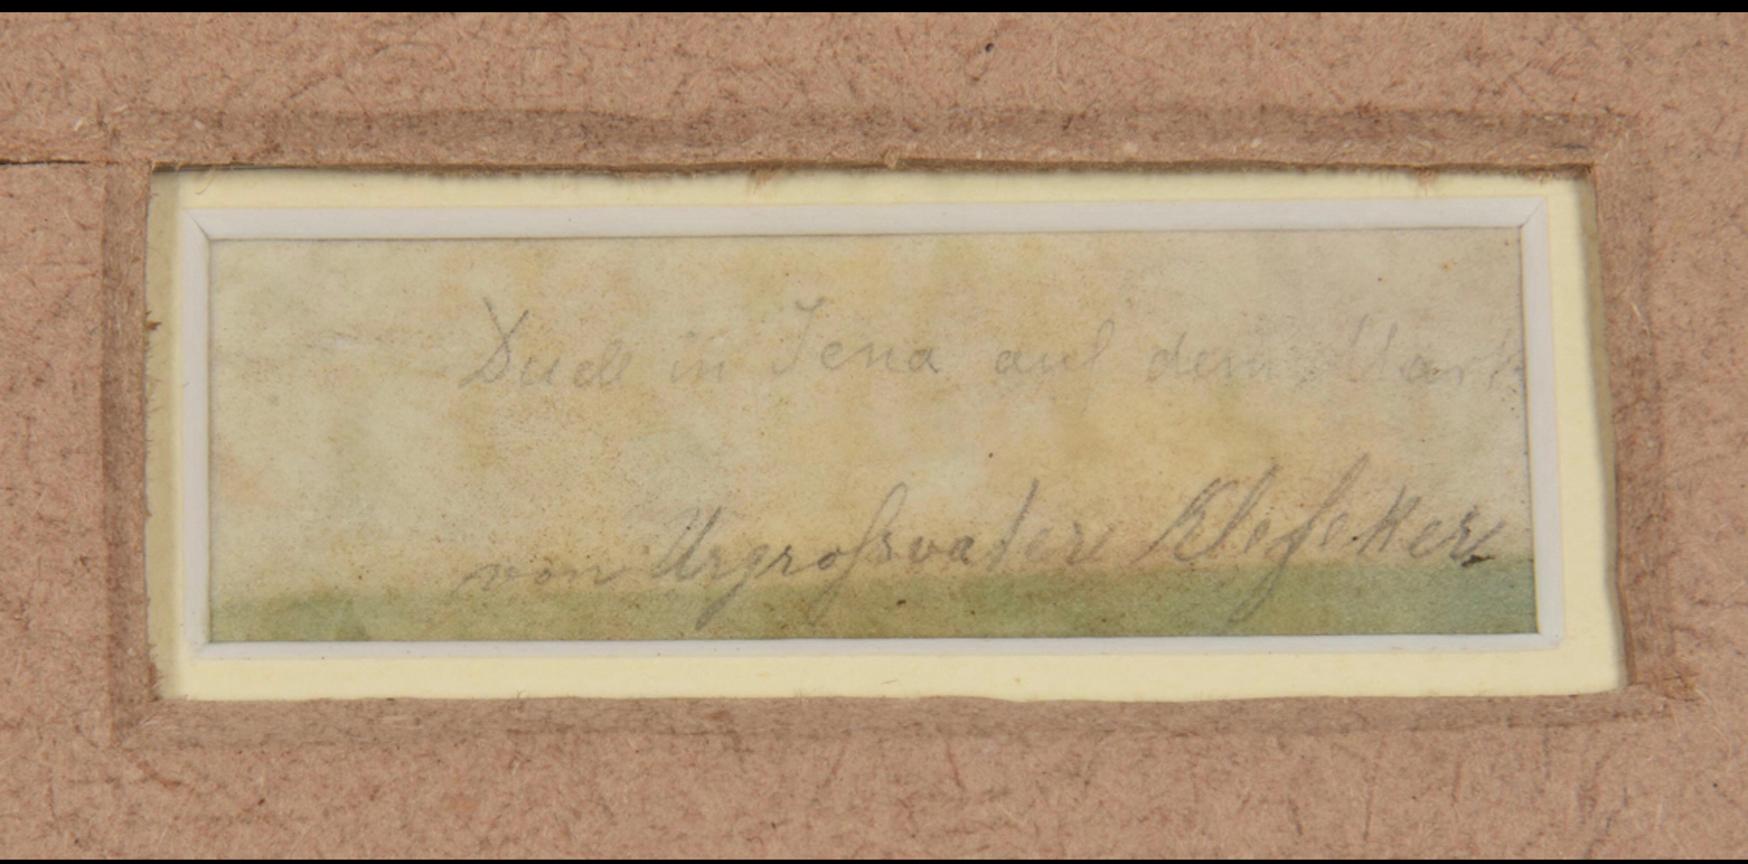 Duell in Jena auf dem Markt
von Urgroßvater Klefeker